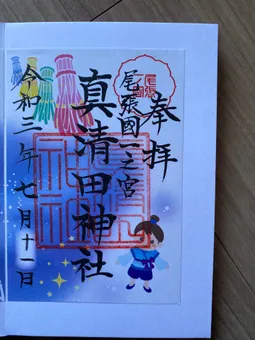 奉拝
尾張國一之宮
真清田神社
令和二年七月十一日